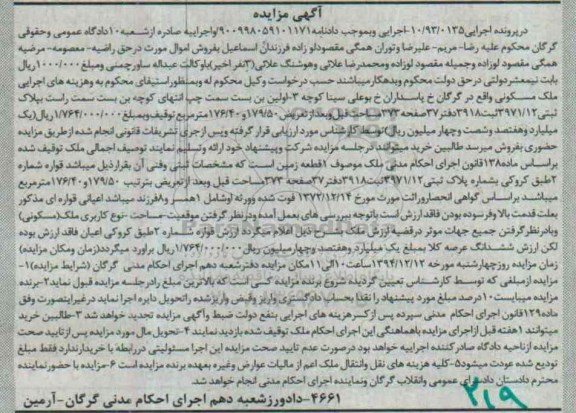 آگهی مزایده
درپرونده اجرایی۱۰/۹۳/۰۱۳۵-اجرایی وبموجب دادنامه۹۰۰۹۹۸۰۵۹۱۰۱۱۷۱واجراییه صادره ازشعبه۱۰دادگاه عمومی وحقوقی
گرگان محکوم علیه رضا-مریم-علیرضا وتوران همگی مقصودلو زاده فرزندان اسماعیل بفروش اموال مورث درحق راضیه-معصومه-مرضیه
همگی مقصود لوزاده وجمیله مقصود لوزاده ومحمدرضا علائی وهوشنگ علائی(۳نفر اخیر)باوکالت عبداله ساورچمنی ومبلغ۱/۰۰۰/۰۰۰ریال
بابت نیمعشردولتی درحق دولت محکوم وبدهکارمیباشند حسب درخواست وکیل محکوم له وبمنظوراستیفای محکوم به وهزینه های اجرایی
ملک مسکونی واقع در گرگان خ پاسداران خ بوعلی سینا کوچه ۳-اولین بن بست سمت چپ انتهای کوچه بن بست سمت راست بپلاک
ثبتی۳۹۷۱/۱۲ثبت۳۹۱۸دفتر۳۷صفحه۳۷۳مساحت قبل وبعدازتعریض۱۷۹/۵۰و۱۷۶/۴۰مترمربع توقیف وبمبلغ۱/۷۶۴/۰۰۰/۰۰۰ریال(یک
میلیارد وهفتصد وشصت وچهار میلیون ریال)توسط کارشناس مورد ارزیابی قرار گرفته وپس ازجری تشریفات قانونی انجام شده ازطریق مزایده
حضوری بفروش میرسد طالبین خرید میتوانند درجلسه مزایده شرکت وپیشنهاد خود ارائه وتسلیم نمایند توصیف اجمالی ملک توقیف شده
براساس ماده۱۳۸قانون اجرای احکام مدنی ملک موصوف ۱قطعه زمین است که مشخصات ثبتی وفنی آن بقرارذیل میباشد قواره شماره
۲طبق کروکی بشماره پلاک ثبتی۳۹۷۱/۱۲ثبت۳۹۱۸دفتر۳۷صفحه ۳۷۳مساحت قبل وبعد ازتعریض بترتیب ۱۷۹/۵۰و۱۷۶/۴۰مترمربع
میباشد براساس گواهی انحصاروراثت مورث مورخ ۱۳۷۲/۱۲/۱۴ فوت شده وورثه اوشامل ۱همسر و۸فرزند میباشد اعیانی قواره ای مذکور
بعلت قدمت بالا وفرسوده بودن فاقد ارزش است باتوجه ببررسی های بعمل آمده ودرنظر گرفتن موقعیت-مساحت-نوع کاربری ملک(مسکونی)
وبادرنظرگرفتن جمیع جهات موثر درقضیه ارزش ملک بشرح ذیل اعلام میگردد ارزش قواره شماره ۲طبق کروکی اعیان فاقد ارزش بوده
لکن ارزش ششدانگ عرصه کلا بمبلغ یک میلیارد وهفتصد وچهارمیلیون ریال۱/۷۶۴/۰۰۰/۰۰۰ریال براورد میگردد(زمان ومکان مزایده)
زمان مزایده روزچهارشنبه مورخه ۱۳۹۴/۱۲/۱۲ساعت۱۰الی۱۱مکان مزایده دفترشعبه دهم اجرای احکام مدنی گرگان (شرایط مزایده)۱-
مزایده ازمبلغی که توسط کارشناس تعیین گردیده شروع برنده مزایده کسی است که بالاترین مبلغ رادرجلسه مزایده قبول نماید۲-برنده
مزایده میبایست۱۰درصد مبلغ مورد پیشنهاد را نقدا بحساب دادگستری واریز وقبض واریزشده راتحویل دایره اجرا نماید درغیراینصورت وفق
ماده۱۲۹قانون اجرای احکام مدنی سپرده پس از کسرهزینه های اجرایی بنفع دولت ضبط وآگهی مزایده تجدید خواهد شد ۳-طالبین خرید
میتوانند ۱هفته قبل ازاجرای مزایده باهماهنگی این اجرای احکام ملک توقیف شده بازدید نمایند ۴-تحویل مال مورد مزایده پس ازتایید صحت
مزایده ازناحیه دادگاه صادر کننده اجراییه خواهد بود درصورت عدم تایید صحت مزایده این اجرا مسئولیتی دررابطه با خریدارندارد فقط مبلغ
تودیع شده عودت میشود۵-کلیه هزینه های نقل وانتقال ملک اعم از مالیات عوارض وغیره بعهده برنده مزایده است ۶-مزایده با حضورنماینده
محترم دادستان دادسرای عمومی وانقلاب گرگان ونماینده اجرای احکام مدنی انجام خواهد شد.
۴۶۶۱-دادورزشعبه دهم اجرای احکام مدنی گرگان-آرمین